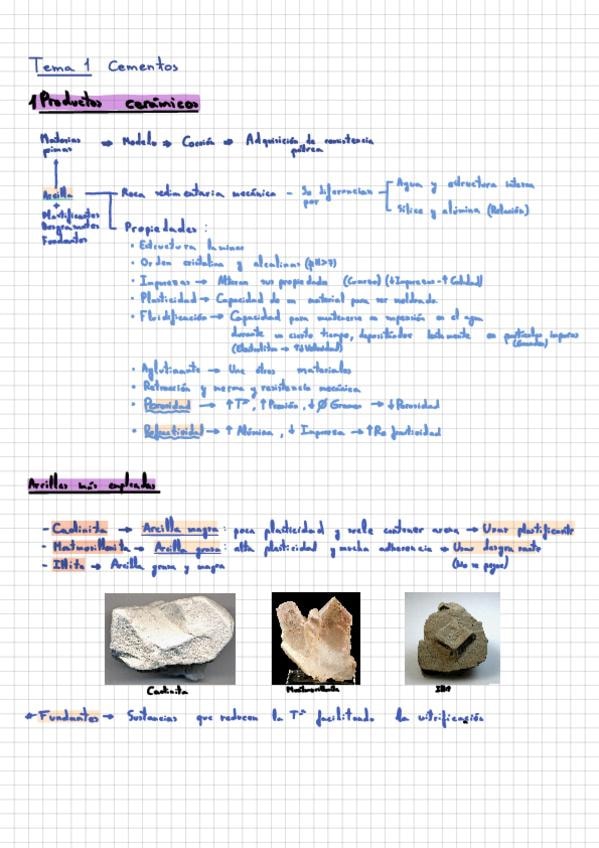 Tema 1 Cementos
1 Productos cerámicos
Materias primas → Modelo → Cocción → Adquisición de resistencia pétrea
Arcilla — Roca sedimentaria mecánica - Se diferencian por
Agua y estructura interna
Sílice y alúmina (Relación)
+
Plastificantes
Desgrasantes
Fundentes
Propiedades:
• Estructura laminar
• Orden cristalino y alcalinas (pH>7)
• Impurezas → Alteran sus propiedades (Cuarzo) (↓Impurezas-↑Calidad)
• Plasticidad → Capacidad de un material para ser moldeado
• Fluidificación → Capacidad para mantenerse en suspensión en el agua
durante un cierto tiempo, depositándose lentamente en partículas impuras
(↑↓Velocidad)
• Aglutinante → Une otros materiales
• Retracción y merma y resistencia mecánica
• Porosidad → ↑Tª, ↑Presión, ↓Ø Grano → ↓Porosidad
• Refractividad → ↑ Alúmina, ↓ Impureza → ↑Refractividad
Arcillas más empleadas
- Caolinita → Arcilla magra: poca plasticidad y suele contener arena → Usar plastificante
- Montmorillonita → Arcilla grasa: alta plasticidad y mucha adherencia → Usar desgrasante
(No se pegue)
- Illita → Arcilla grasa y magra
Caolinita
Montmorillonita
* Fundentes → Sustancias que reducen la Tª facilitando la vitrificación